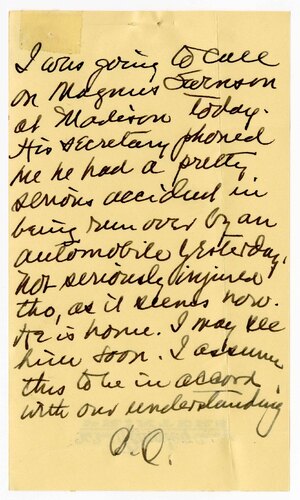 I was going to call
on Magnus Swenson
at Madison today.
His secretary phoned
me he had a pretty
serious accident in
being run over by an
automobile yesterday,
not seriously injured
tho, as it seems now.
He is home. I may see
him soon. I assume
this to be in accord
with our understanding